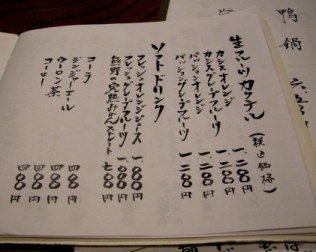 生フルーツカクテル (税込価格)
カシスオレンジ 一二〇〇円
カシスグレープフルーツ 一二〇〇円
パッションオレンジ 一二〇〇円
パッショングレープフルーツ 一二〇〇円
ソフトドリンク
フレッシュオレンジジュース 一〇〇〇円
フレッシュグレープフルーツ 一〇〇〇円
コーラ 四〇〇円
ジンジャーエール 四〇〇円
ウーロン茶 四〇〇円
コーヒー 四〇〇円
鴨鍋